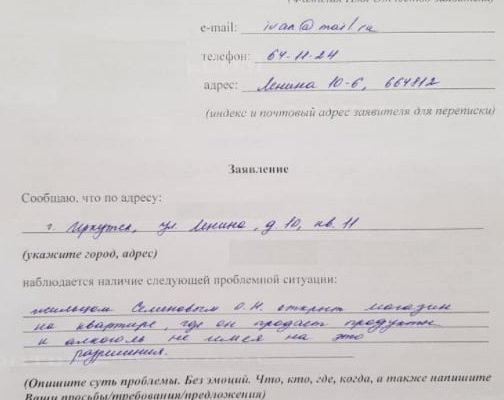 (Фамилия Имя Отчество заявителя)
e-mail: ivan@mail.ru
телефон: 64-11-24
адрес: Ленина 10-6, 664812
(индекс и почтовый адрес заявителя для переписки)
Заявление
Сообщаю, что по адресу:
г. Иркутск, ул. Ленина, д. 10, кв. 11
(укажите город, адрес)
наблюдается наличие следующей проблемной ситуации:
жильцом Семеновым О.Н. открыт магазин
на квартире, где он продает продукты
и алкоголь не имея на это
разрешения.
(Опишите суть проблемы. Без эмоций. Что, кто, где, когда, а также напишите
Ваши просьбы/требования/предложения)